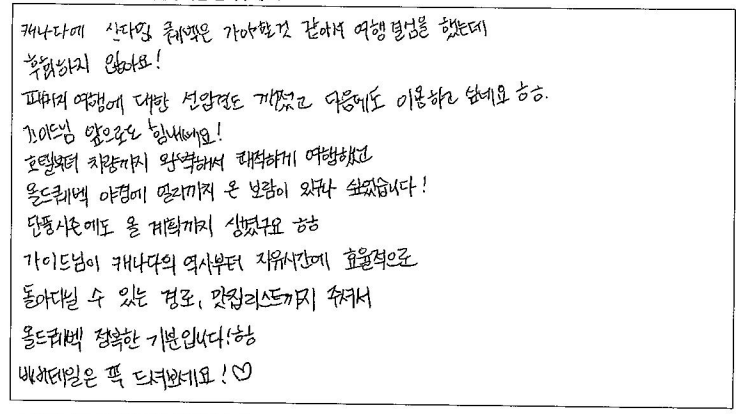 캐나다에 산다면 퀘벡은 가야할것 같아서 여행결심을 했는데
후회하지 않아요!
패키지 여행에 대한 선입견도 깨졌고 다음에도 이용하고 싶네요 ㅎㅎ.
가이드님 앞으로도 힘내세요!
호텔부터 차량까지 완벽해서 쾌적하게 여행했고
올드퀘벡 야경에 멀리까지 온 보람이 있구나 싶었습니다!
단풍시즌에도 올 계획까지 생겼구요 ㅎㅎ
가이드님이 캐나다의 역사부터 자유시간에 효율적으로
돌아다닐 수 있는 경로, 맛집리스트까지 주셔서
올드퀘벡 정복한 기분입니다!ㅎㅎ
비버테일은 꼭 드셔보세요!♡